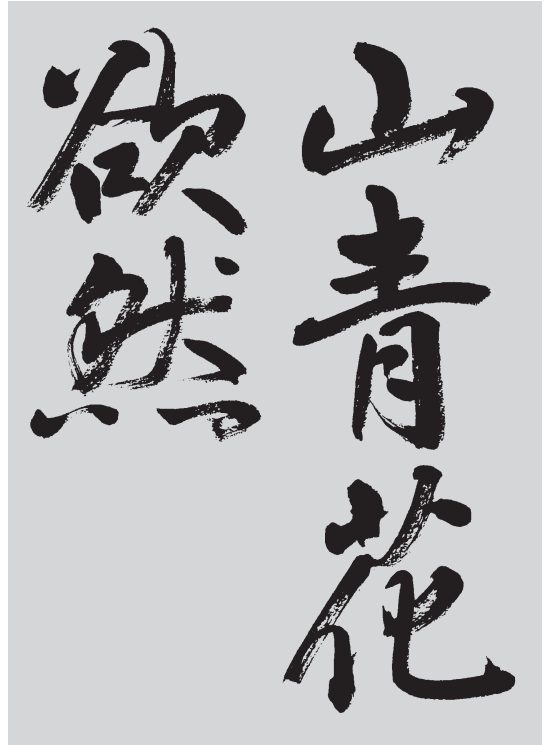 山青花
欲然